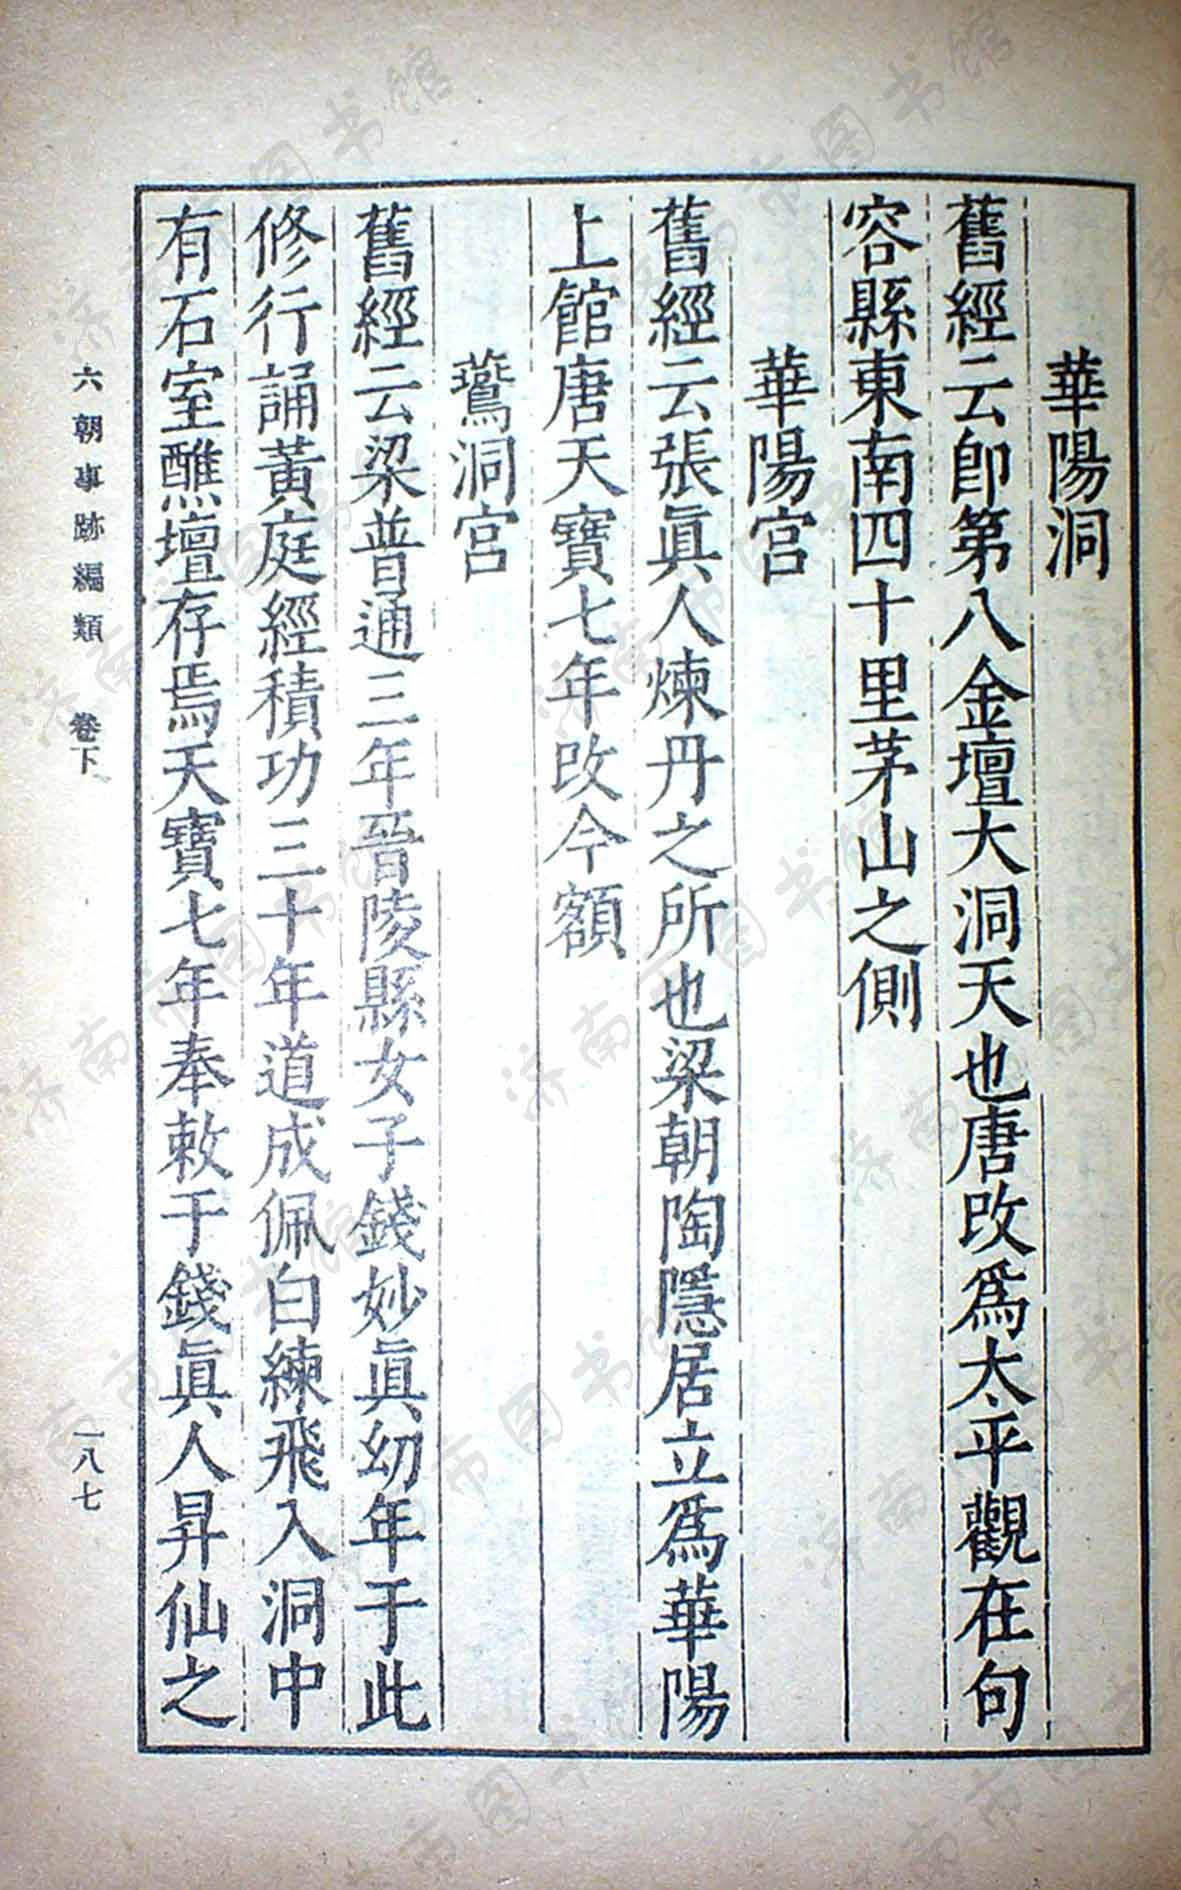 華陽洞
舊經云即第八金壇大洞天也唐改爲太平觀在句
容縣東南四十里茅山之側
華陽宮
舊經云張眞人煉丹之所也梁朝陶隱居立爲華陽
上館唐天寶七年改今額
鷰洞宮
舊經云梁普通三年晉陵縣女子錢妙眞幼年于此
修行誦黃庭經積功三十年道成佩白練飛入洞中
有石室醮壇存焉天寶七年奉敕于錢眞人昇仙之
六朝事跡編類 卷下
一八七
济南市图书馆